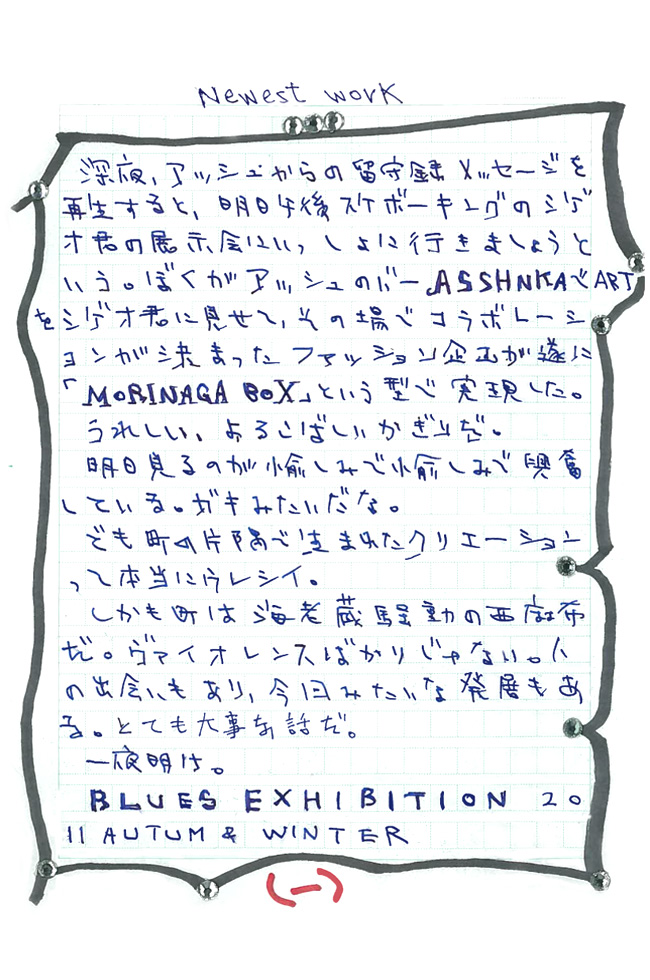 Newest work
深夜、アッシュからの留守録メッセージを
再生すると、明日午後スケボーキングのシゲ
オ君の展示会にいっしょに行きましょうと
いう。ぼくがアッシュのバーASSHNKAでART
をシゲオ君に見せて、その場でコラボレーシ
ョンが決まったファッション企画が遂に
「MORINAGA BOX」という型で実現した。
うれしい、よろこばしいかぎりだ。
明日見るのが愉しみで愉しみで興奮
している。ガキみたいだな。
でも町の片隅で生まれたクリエーション
って本当にウレシイ。
しかも町は海老蔵騒動の西麻布
だ。ヴァイオレンスばかりじゃない。人
の出会いもあり、今回みたいな発展もあ
る。とても大事な話だ。
一夜明け。
BLUES EXHIBITION 20
11 AUTUM & WINTER
(一)